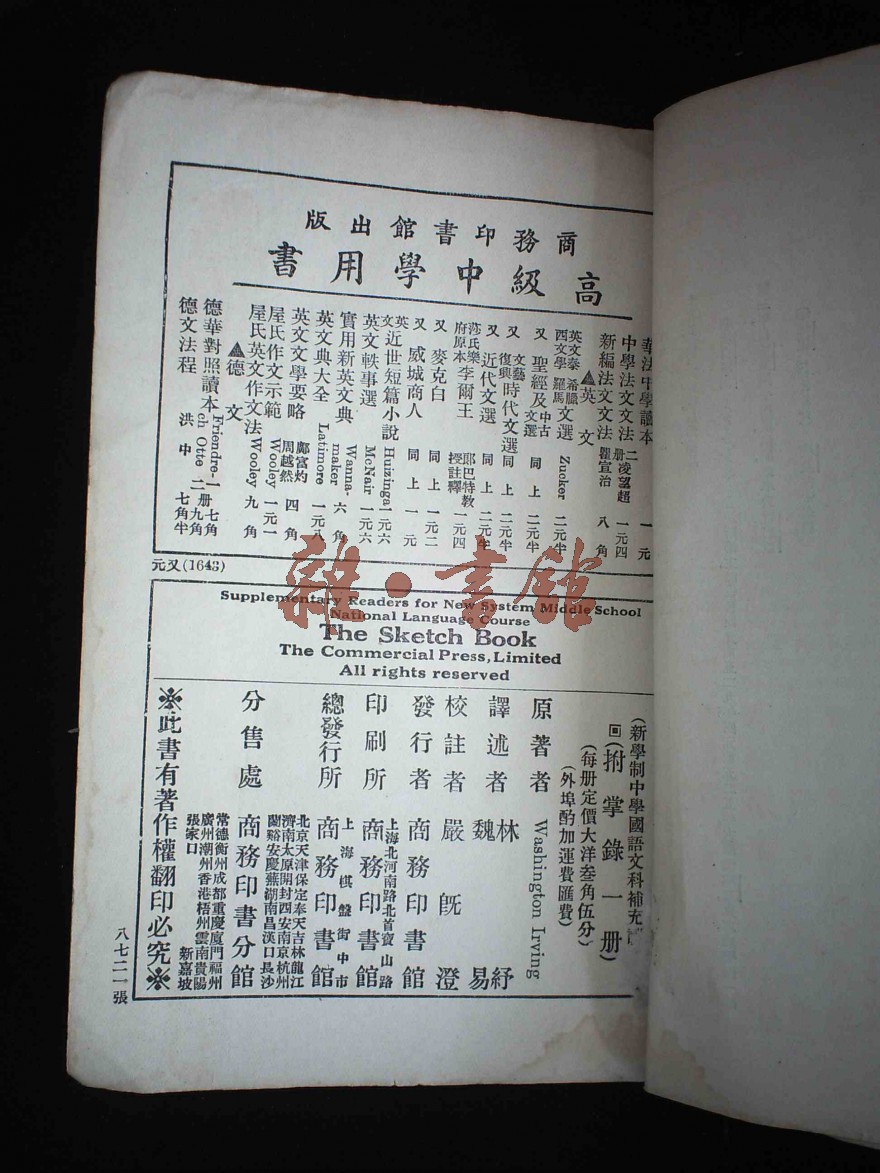 商務印書館出版
高級中學用書
華法中學讀本 一元
中學法文文法 二册 凌望超 一元四
新編法文文法 瞿宣治 八角
▲英文
英文泰西文學 希臘羅馬文選 Zucker 二元半
又 聖經及中古文選 同上 二元半
又 文藝復興時代文選 同上 二元半
又 近代文選 同上 二元半
范氏樂府原本李爾王 耶巴特教授註釋 一元四
又 麥克白 同上 一元二
又 威城商人 同上 一元
英文近世短篇小說 Huizinga 一元六
英文軼事選 McNair 一元六
實用新英文典 Wannamaker 六角
英文典大全 Latimore 一元八
英文文學要略 鄺富灼 周越然 四角
屋氏作文示範 Wooley 一元一
屋氏英文作文法 Wooley 九角
▲德文
德華對照讀本 Friendre-ch Otte 一册七角 二册九角
德文法程 洪中 七角半
元又(1643)
Supplementary Readers for New System Middle School
National Language Course
The Sketch Book
The Commercial Press, Limited
All rights reserved
(新學制中學國語文科補充
回(拊掌錄一册)
(每册定價大洋叁角伍分)
(外埠酌加運費匯費)
原著者 Washington Irving
譯述者 林紓 魏易
校註者 嚴旣澄
發行者 商務印書館
印刷所 上海北河南路北首寶山路 商務印書館
總發行所 上海棋盤街中市 商務印書館
分售處 商務印書分館
北京天津保定奉天吉林龍江
濟南太原開封西安南京杭州
蘭谿安慶蕪湖南昌漢口長沙
常德衡州成都重慶廈門福州
廣州潮州香港梧州雲南貴陽
張家口 新嘉坡
※此書有著作權翻印必究※
八七二一張
雜·書館